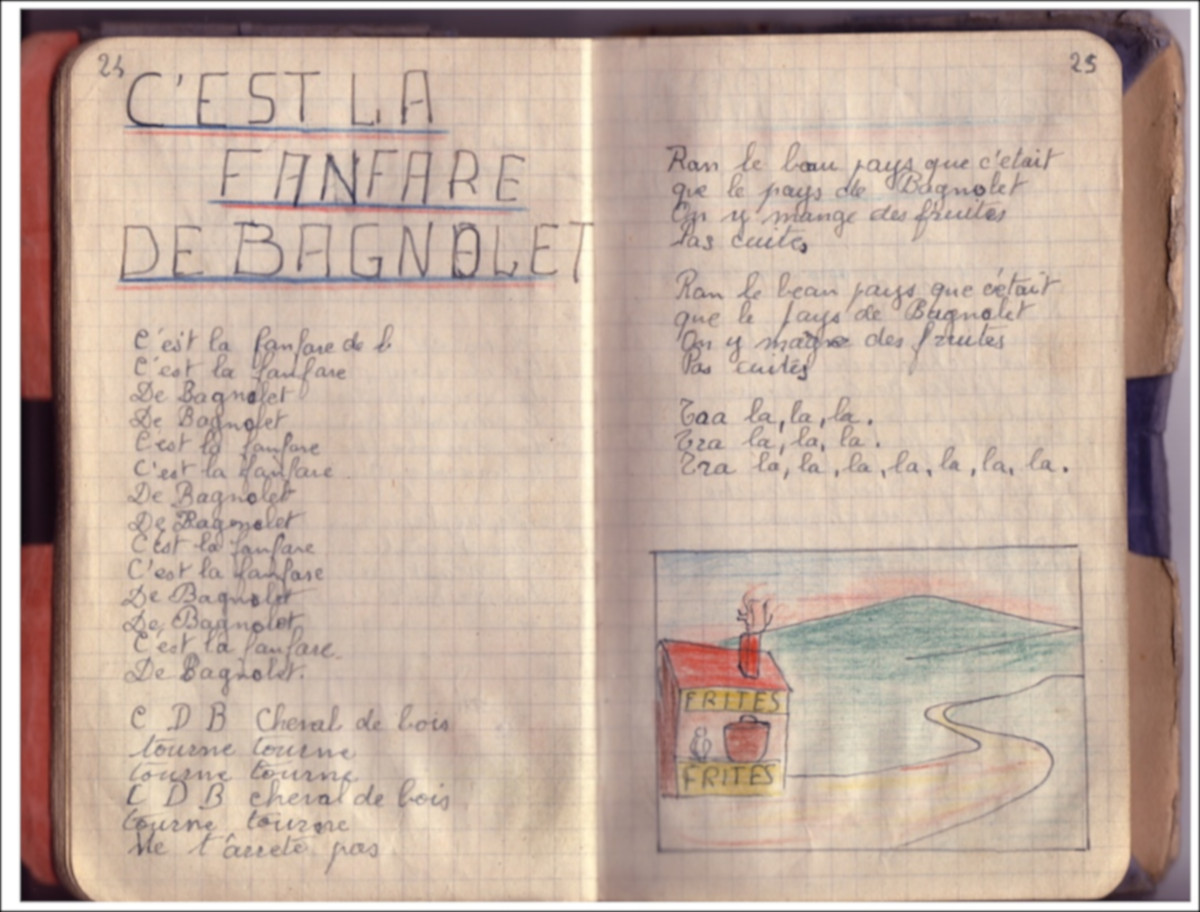 24
C'EST LA
FANFARE
DE BAGNOLET
C'est la fanfare de b
C'est la fanfare
De Bagnolet
De Bagnolet
C'est la fanfare
C'est la fanfare
De Bagnolet
De Bagnolet
C'est la fanfare
C'est la fanfare
De Bagnolet
De Bagnolet
C'est la fanfare
De Bagnolet.
C D B Cheval de bois
tourne tourne
tourne tourne
C D B cheval de bois
tourne tourne
Ne t'arrete pas
25
Ran le beau pays que c'était
que le pays de Bagnolet
On y mange des fruites
Pas cuites
Ran le beau pays que c'était
que le pays de Bagnolet
On y des fruites
Pas cuites
Taa la, la, la.
Tra la, la, la.
Tra la, la, la, la, la, la, la.
FRITES
FRITES